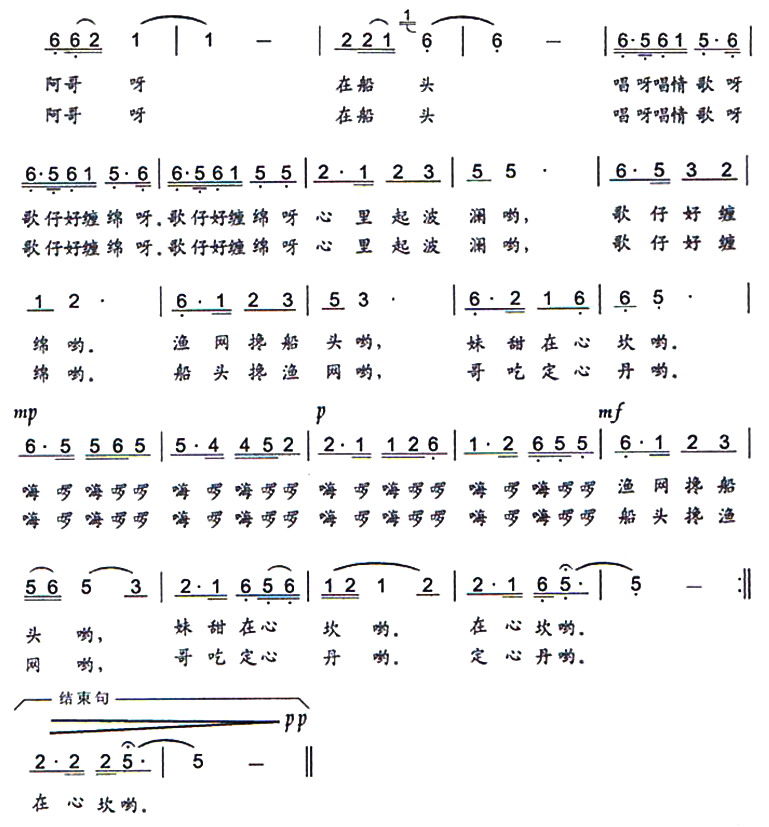 1
6 6 2 1 | 1 － | 2 2 1 6 | 6 － | 6·5 6 1 5·6 |
阿哥 呀 在船 头 唱呀唱情歌呀
阿哥 呀 在船 头 唱呀唱情歌呀
6·5 6 1 5·6 | 6·5 6 1 5 5 | 2·1 2 3 | 5 5 · | 6·5 3 2 |
歌仔好缠绵呀.歌仔好缠绵呀 心里起波 澜哟, 歌仔好缠
歌仔好缠绵呀.歌仔好缠绵呀 心里起波 澜哟, 歌仔好缠
1 2 · | 6·1 2 3 | 5 3 · | 6·2 1 6 | 6 5 · |
绵哟. 渔网搀船 头哟, 妹甜在心 坎哟.
绵哟. 船头搀渔 网哟, 哥吃定心 丹哟.
mp p mf
6·5 5 6 5 | 5·4 4 5 2 | 2·1 1 2 6 | 1·2 6 5 5 | 6·1 2 3 |
嗨啰嗨啰啰 嗨啰嗨啰啰 嗨啰嗨啰啰 嗨啰嗨啰啰 渔网搀船
嗨啰嗨啰啰 嗨啰嗨啰啰 嗨啰嗨啰啰 嗨啰嗨啰啰 船头搀渔
5 6 5 3 | 2·1 6 5 6 | 1 2 1 2 | 2·1 6 5· | 5 － :‖
头 哟, 妹甜在心 坎 哟. 在心坎哟.
网 哟, 哥吃定心 丹 哟. 定心丹哟.
结束句
pp
2·2 2 5· | 5 － ‖
在心坎哟.